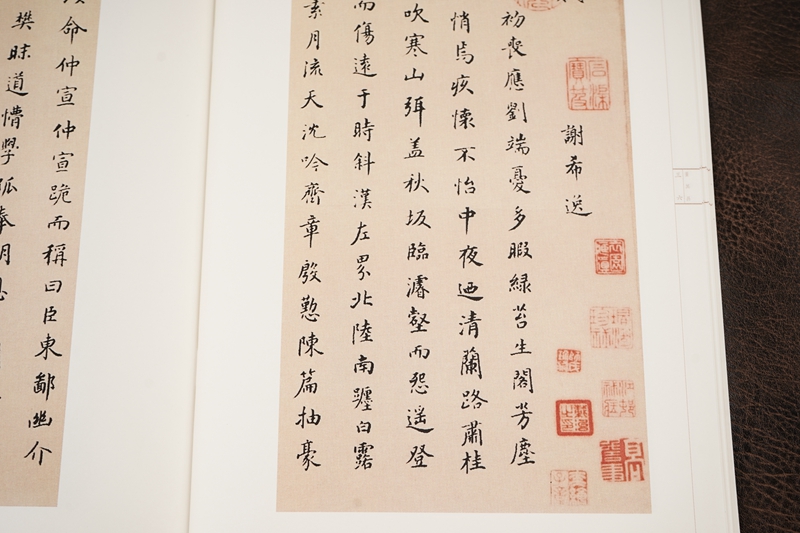 謝希逸
初喪應劉端憂多暇綠苔生閣芳塵
悄焉疚懷不怡中夜迺清蘭路肅桂
吹寒山弭蓋秋坂臨濬壑而怨遥登
而傷遠于時斜漢左界北陸南躔白露
素月流天沈吟齊章殷懃陳篇抽豪
命仲宣仲宣跪而稱曰臣東鄙幽介
樊昧道懵學孤奉明